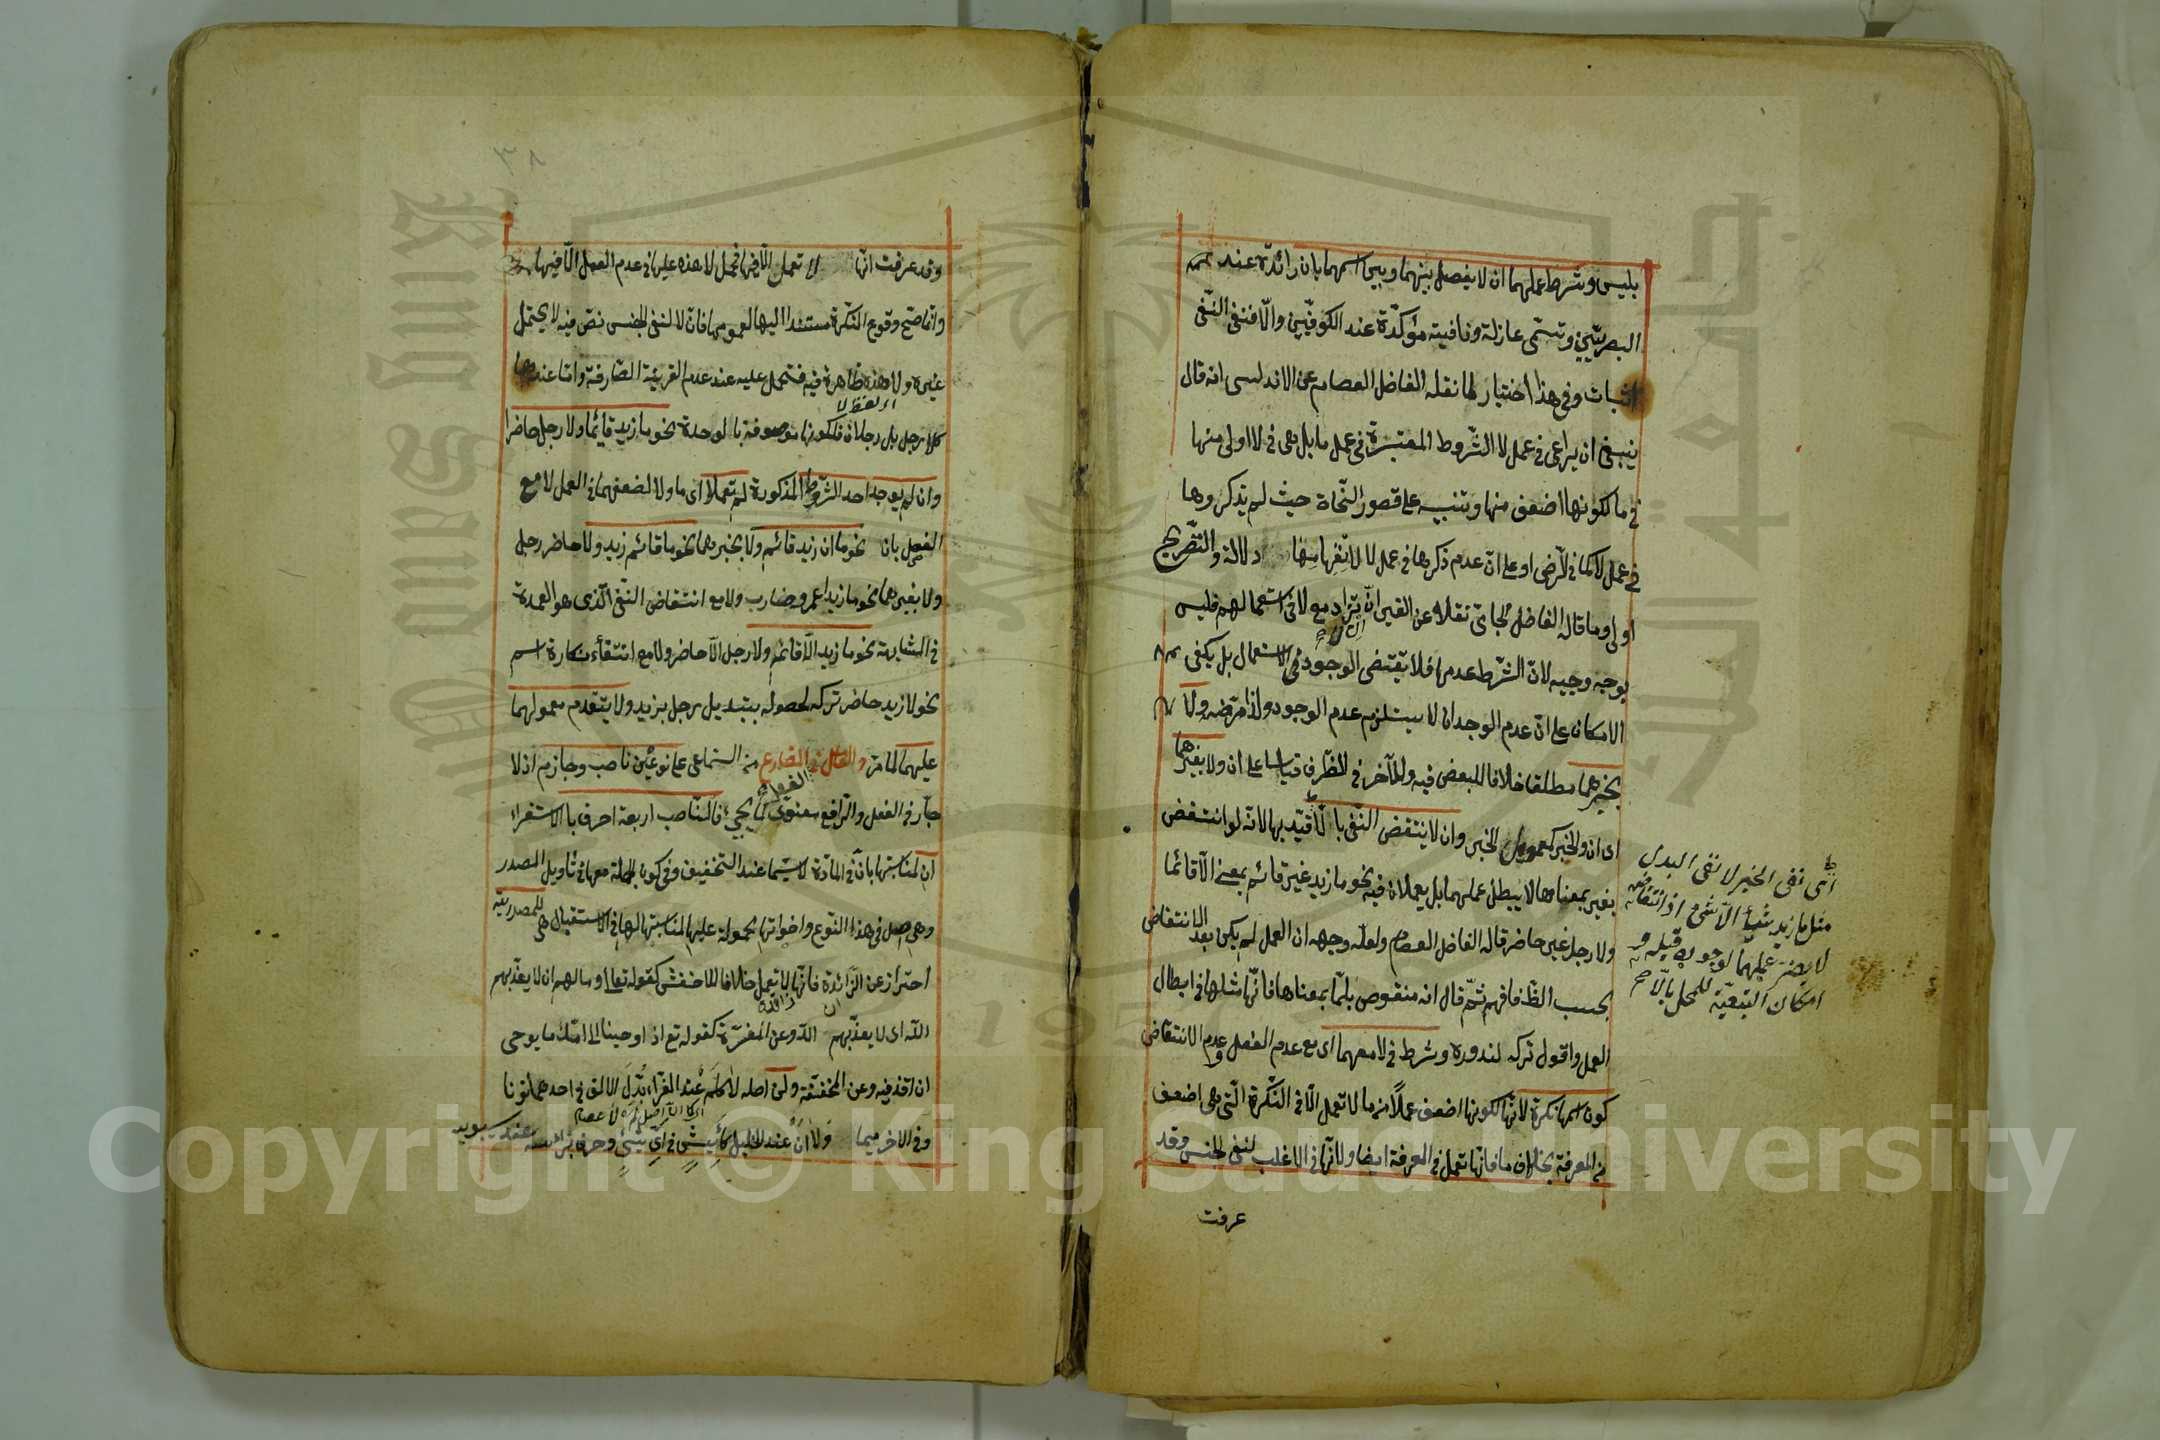 بليس وشرط عملهما ان لا يفصل بينهما وبين اسمهما بان زائدة عند
البصريين وتسمى عازلة ونافية مؤكدة عند الكوفيين والا فنفى النفى
اثبات وفي هذا اختيار لما نقله الفاضل العصام عن الاندلسى انه قال
ينبغى ان يراعى في عمل لا الشروط المعتبرة في عمل ما بل هى في لا اولى منها
في ما لكونها اضعف منها وتنبيه على قصور النحاة حيث لم يذكروها
في عمل لا كما في الرضى او على ان عدم ذكرها في عمل لا دلالة والتصريح
اولى وما قاله الفاضل الجامى نقلا عن الغير ان يزاد مع لا في استعمالهم فليس
بوجه وجيه لان الشرط عدمها فلا يقتضى الوجود في الاستعمال بل يكفى
الامكان على ان عدم الوجدان لا يستلزم عدم الوجود ولذا مرضه ولا
بخبرهما مطلقا خلافا للبعض فيه وللآخر في الظرف قياسا على ان ولا بغيرهما
اى ان والخبر كمعمول الخبر وان لا ينتقض النفى بالا قيد بها لانه لو انتقض
بغير بمعناها لا يبطل عملهما بل يعملان فيه نحو ما زيد غير قائم بمعنى الا قائما
ولا رجل غير حاضر قاله الفاضل العصام ولعله وجهه ان العمل لم يكن بعد الانتقاض
بحسب الظ فافهم ثم قال انه منقوص بلما بمعناها فانها مثلها في ابطال
العمل واقول تركه لندوره وشرط في لا معهما اى مع عدم الفصل وعدم الانتقاض
كون اسمها نكرة لانها لكونها اضعف عملا من ما لا تعمل الا في النكرة التى هى اضعف
من المعرفة بخلاف ما فانها تعمل في المعرفة ايضا ولانها في الاغلب لنفى الجنس وقد
عرفت
اى نفى الخبر لا نفى البدل
مثل ما زيد شيئا الا شئ اذ انتقاضه
لا يضر عملهما لوجوده قبله و
امكان التبعية للمحل بالا
٣٨
وقد عرفت انها لا تعمل الا فيها فحمل لا هذه عليها في عدم العمل الا فيها
وانما صح وقوع النكرة مسندا اليها لعمومها فان لا لنفى الجنس نص فيه لا يحتمل
غيره ولا هذه ظاهرة فيه فتحمل عليه عند عدم القرينة الصارفة واما عندها
كلا رجل بل رجلان فلكونها موصوفة بالوحدة نحو ما زيد قائما ولا رجل حاضرا
وان لم يوجد احد الشروط المذكورة لم تعملا اى ما ولا لضعفهما في العمل لا مع
الفصل بان نحو ما ان زيد قائم ولا بخبرهما نحو ما قائم زيد ولا حاضر رجل
ولا بغيرهما نحو ما زيدا عمرو ضارب ولا مع انتقاض النفى الذى هو العمدة
في المشابهة نحو ما زيد الا قائم ولا رجل الا حاضر ولا مع انتفاء نكارة اسم
نحو لا زيد حاضر تركه لحصوله بتبديل رجل بزيد ولا يتقدم معمولهما
عليهما لما مر والعامل في المضارع من السماعى على نوعين ناصب وجازم اذ لا
جار في الفعل والرافع معنوى كما يجيء فالناصب اربعة احرف بالاستقراء
ان لمناسبتها بان في المادة لا سيما عند التخفيف وفي كون الجملة معها في تأويل المصدر
وهى اصل في هذا النوع واخواتها محمولة عليها لمناسبتها لها في الاستقبال هى للمصدرية
احتراز عن الزائدة فانها لا تعمل خلافا للاخفش كقوله تعالى وما لهم ان لا يعذبهم
الله اى لا يعذبهم الله وعن المفسرة كقوله تع اذ اوحينا الى امك ما يوحى
ان اقذفيه وعن المخففة ولن اصله لا كلم عند الفراء بدل الالف في احدهما نونا
وفي الآخر ميما ولا ان عند الخليل كايش في اى شئ وحرف برأسه عند سيبويه